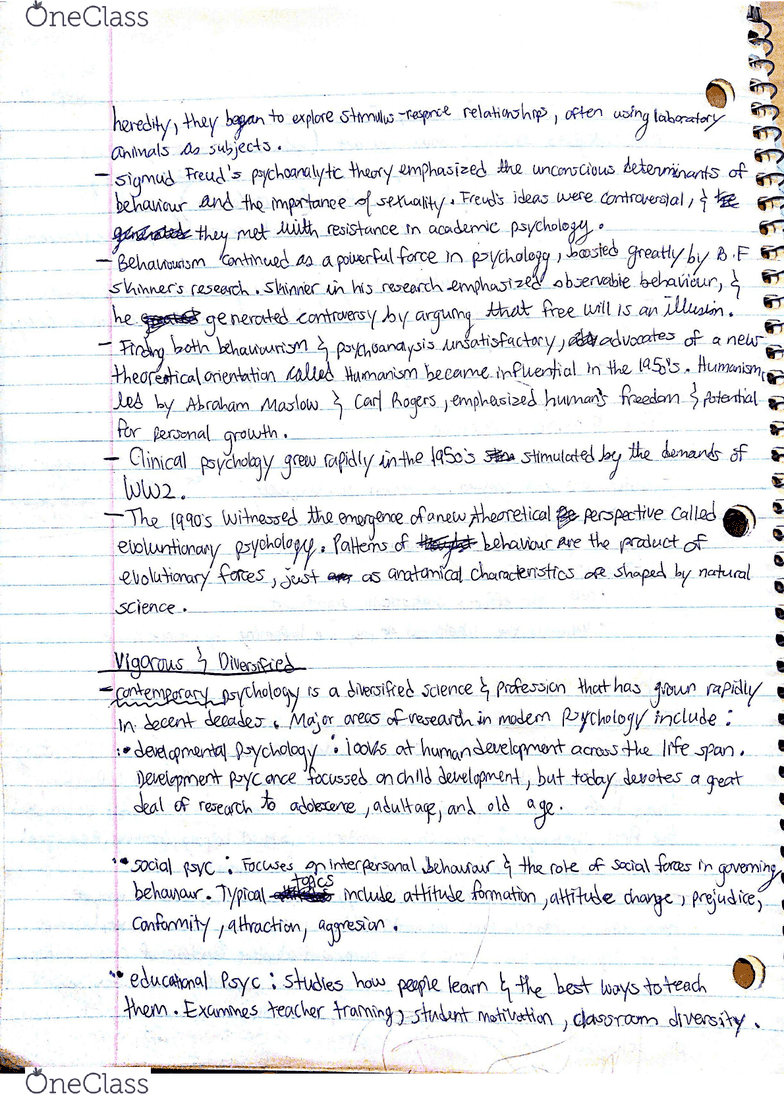 OneClass
heredity, they began to explore stimulus-responce relationships, often using laboratory
animals as subjects.
- Sigmud Freud's psychoanalytic theory emphasized the unconscious determinants of
behaviour and the importance of sexuality. Freud's ideas were controversial, &
they met with resistance in academic psychology.
- Behaviourism continued as a powerful force in psychology, boosted greatly by B.F
Skinner's research. Skinner in his research emphasized observable behaviour, &
he generated controversy by arguing that free will is an illusion.
- Finding both behaviourism & psychoanalysis unsatisfactory, advocates of a new
theoretical orientation called Humanism became influential in the 1950's. Humanism,
led by Abraham Maslow & Carl Rogers, emphasized human's freedom & potential
for personal growth.
- Clinical psychology grew rapidly in the 1950's stimulated by the demands of
WW2.
- The 1990's witnessed the emergence of a new theoretical perspective called
evoluntionary psychology. Patterns of behaviour are the product of
evolutionary forces, just as anatomical characteristics are shaped by natural
science.
Vigorous & Diversified
- contemporary psychology is a diversified science & profession that has grown rapidly
in decent decades. Major areas of research in modern Psychology include:
• developmental Psychology: looks at human development across the life span.
Development psyc once focussed on child development, but today devotes a great
deal of research to adolescence, adultage, and old age.
• social psyc: Focuses on interpersonal behaviour & the role of social forces in governing
behaviour. Typical topics include attitude formation, attitude change, prejudice,
conformity, attraction, aggresion.
• educational Psyc: Studies how people learn & the best ways to teach
them. Examines teacher training, student motivation, classroom diversity.
OneClass